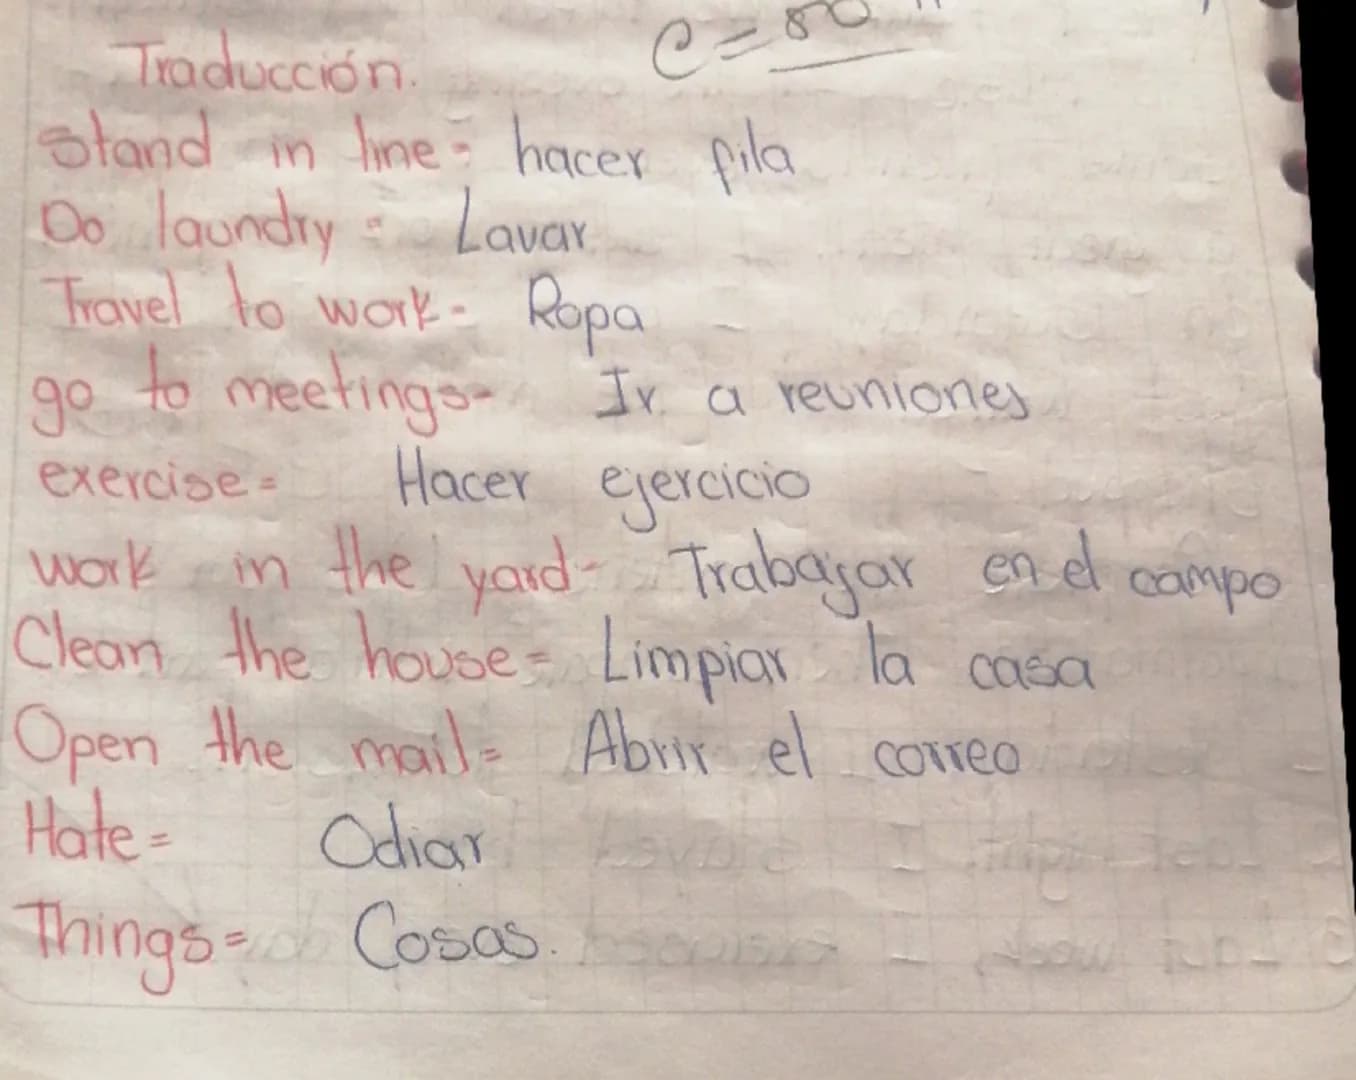 C=80
Traducción.
Stand in line = hacer fila
Do laundry = Lavar
Travel to work - Ropa
go to meetings - Ir a reuniones
exercise = Hacer ejercicio
work in the yard - Trabajar en el campo
Clean the house = Limpiar la casa
Open the mail = Abrir el correo
Hate = Odiar
Things = Cosas.